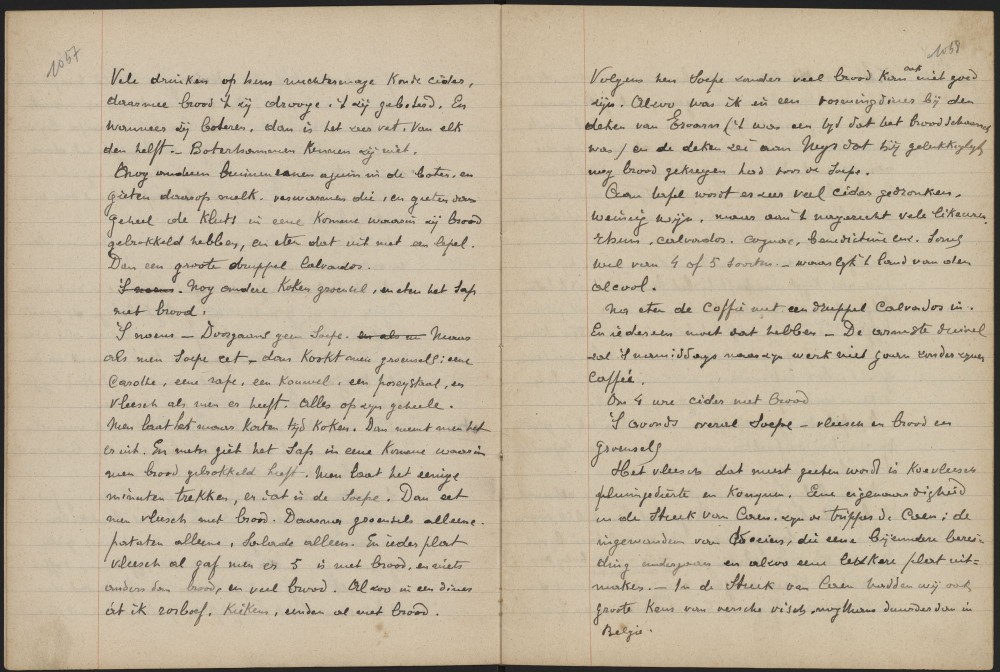 1057
Vele drinken op hun nuchtermage Koude cider,
daarmee brood 't zij drooge, 't zij geboterd. En
wanneer zij boteren, dan is het zeer vet. Van elk
den helft. – Boterhammen kennen zij niet.
Nog anderen bruinen eenen ajuin in de boter, en
gieten daarop melk, verwarmen die, en gieten dan
geheel de kluts in eene Komme waarin zij brood
gebrokkeld hebben, en eten dat uit met een lepel.
Dan een groote druppel Calvados.
'S noens. Nog andere Koken groensel, en eten het Sap
met brood.
'S noens – Doorgaans geen Soepe. en als m Maar
als men Soepe eet, dan kookt men groensels: eene
Carotte, eene rape, een , een poreystaal, en
vleesch als men er heeft. Alles op zijn geheele.
Men laat dat maar korten tijd koken. Dan neemt men het
er uit. En men giet het Sap in eene Komme waarin
men brood gebrokkeld heeft. Men laat het eenige
minuten trekken, en dat is de Soepe. Dan eet
men vleesch met brood. Daarna groensels alleene.
pataten alleene, Salade alleen. En ieder plat
vleesch al gaf men er 5 is met brood, en niets
anders dan brood, en veel brood. Alzoo in een diner
at ik rosboef, Kiekens, enden al met brood.
1058
Volgens hen Soepe zonder veel brood kan ook niet goed
zijn. Alzoo was ik in een diner bij den
deken van Evaarn ('t was een tijd dat het brood schaarsch
was) en de deken zei aan Neys dat hij gelukkiglijk
nog brood gekregen had voor de Soepe.
Aan tafel wordt er zeer veel cider gedronken,
weinig wijn, maar aan 't nagerecht vele likeuren,
rhum, calvados, cognac, benedictine enz. Soms
wel van 4 of 5 soorten. – waarlijk 't land van den
alcool.
Na eten de Coffie met een druppel Calvados in.
En iedereen moet dat hebben – De armste duivel
zal 'S namiddags naar zijn werk niet gaan zonder zijnen
Coffie.
Om 4 ure cider met brood
'S avonds overal Soepe – vleesch en brood en
groensels
Het vleesch dat meest geeten wordt is Koevleesch
pluimgedierte en Konynen. Eene eigenaardigheid
in de Streek van Caen, zijn de trippes de Caen; de
ingewanden van Koeien, die eene bijzondere berei-
ding ondergaan en alzoo eene lekkere plaat uit=
maken. – In de Streek van Caen hadden wij ook
groote Keus van versche visch, nogthans duurder dan in
Belgie.